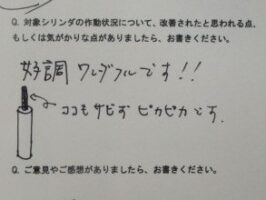 Q. 対象シリンダの作動状況について、改善されたと思われる点、
もしくは気がかりな点がありましたら、お書きください。
好調 ワンダフルです!!
ココもサビず ピカピカです.
Q. ご意見やご感想がありましたら、お書きください。